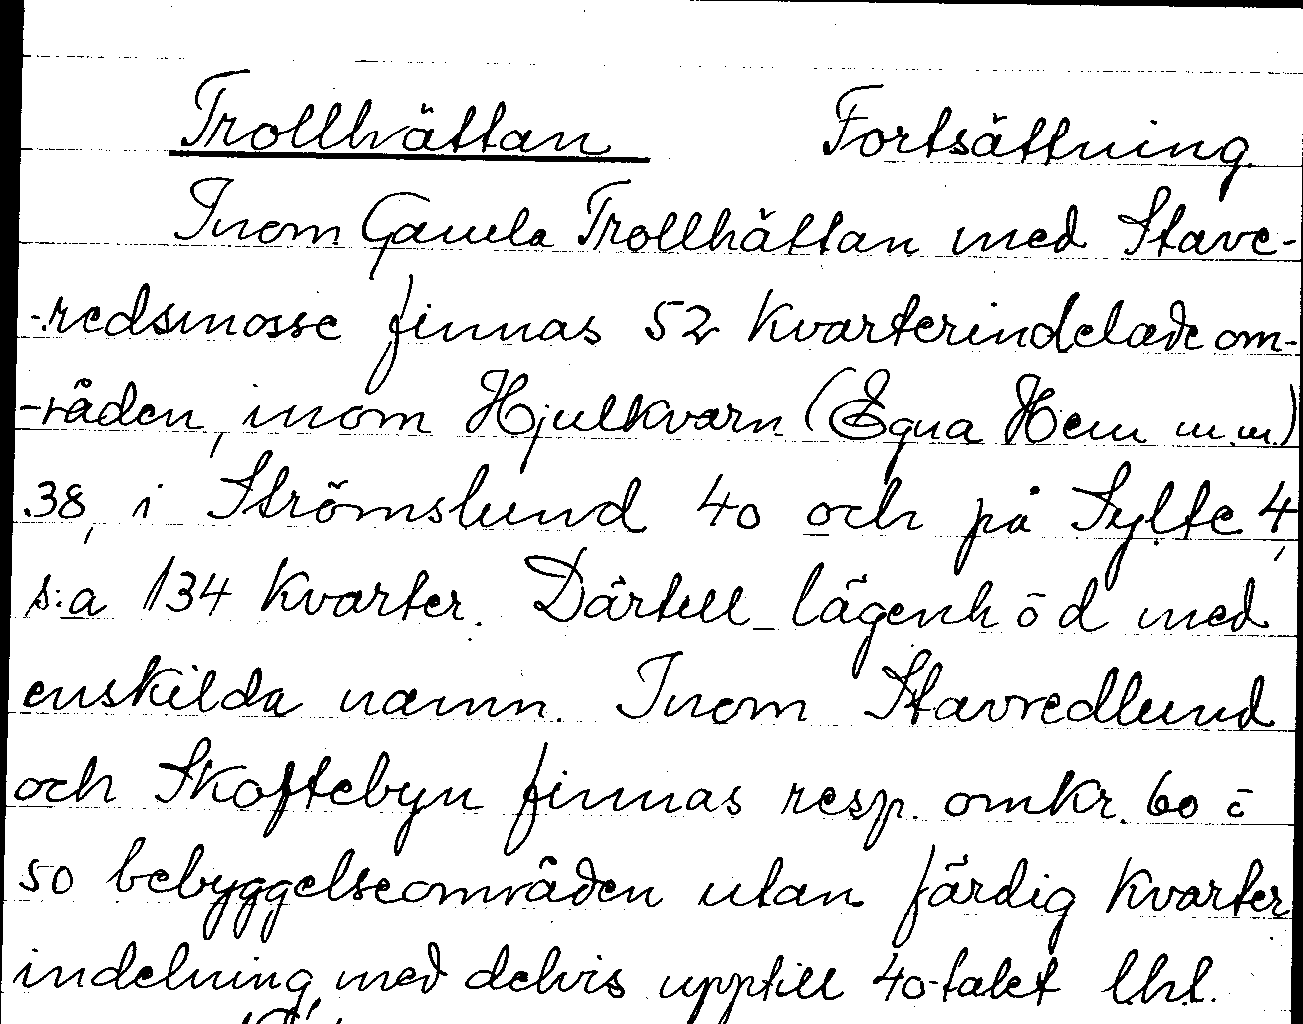 Trollhättan Fortsättning
Inom Gamla Trollhättan med Stave-
-redsmosse finnas 52 kvarterindelade om-
-råden, inom Hjulkvarn (Egna Hem m.m.)
38, i Strömslund 40 och på Sylte 4,
s:a 134 kvarter. Därtill lägenh o d med
enskilda namn. Inom Stavredlund
och Skoftebyn finnas resp. omkr. 60 o
50 bebyggelseområden utan färdig kvarter
indelning, med delvis upptill 40-talet lht.